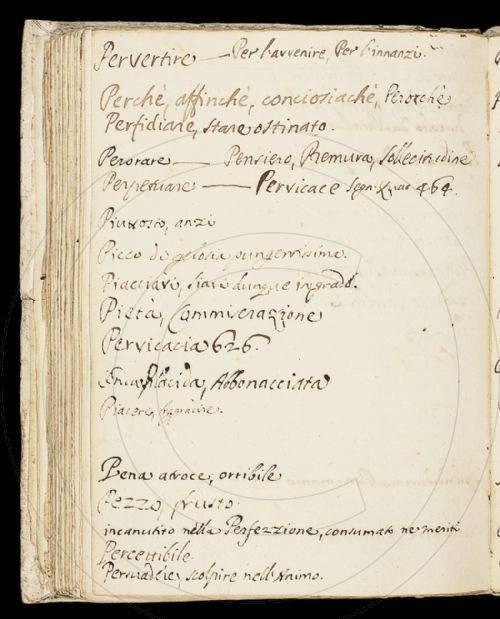 Pervertire — Per l'avvenire, Per l'innanzi.
Perchè, affinchè, conciosiachè, Perochè
Perfidiare, stare ostinato.
Perorare — Pensiero, Premura, Sollecitudine
Perpetuare — Pervicace 464.
Piutosto, anzi
Picco di gelosia pungentissima.
Piacciavi, siavi dunque in grado.
Pietà, Commiserazione
Pervicacia 626.
Placida, Abbonacciata
Piacere, aggradire.
Pena atroce, orribile
Pezzo, frusto
incanutito nella Perfezzione, consumato ne meriti
Percettibile
Persuadere, scolpire nell'Animo.